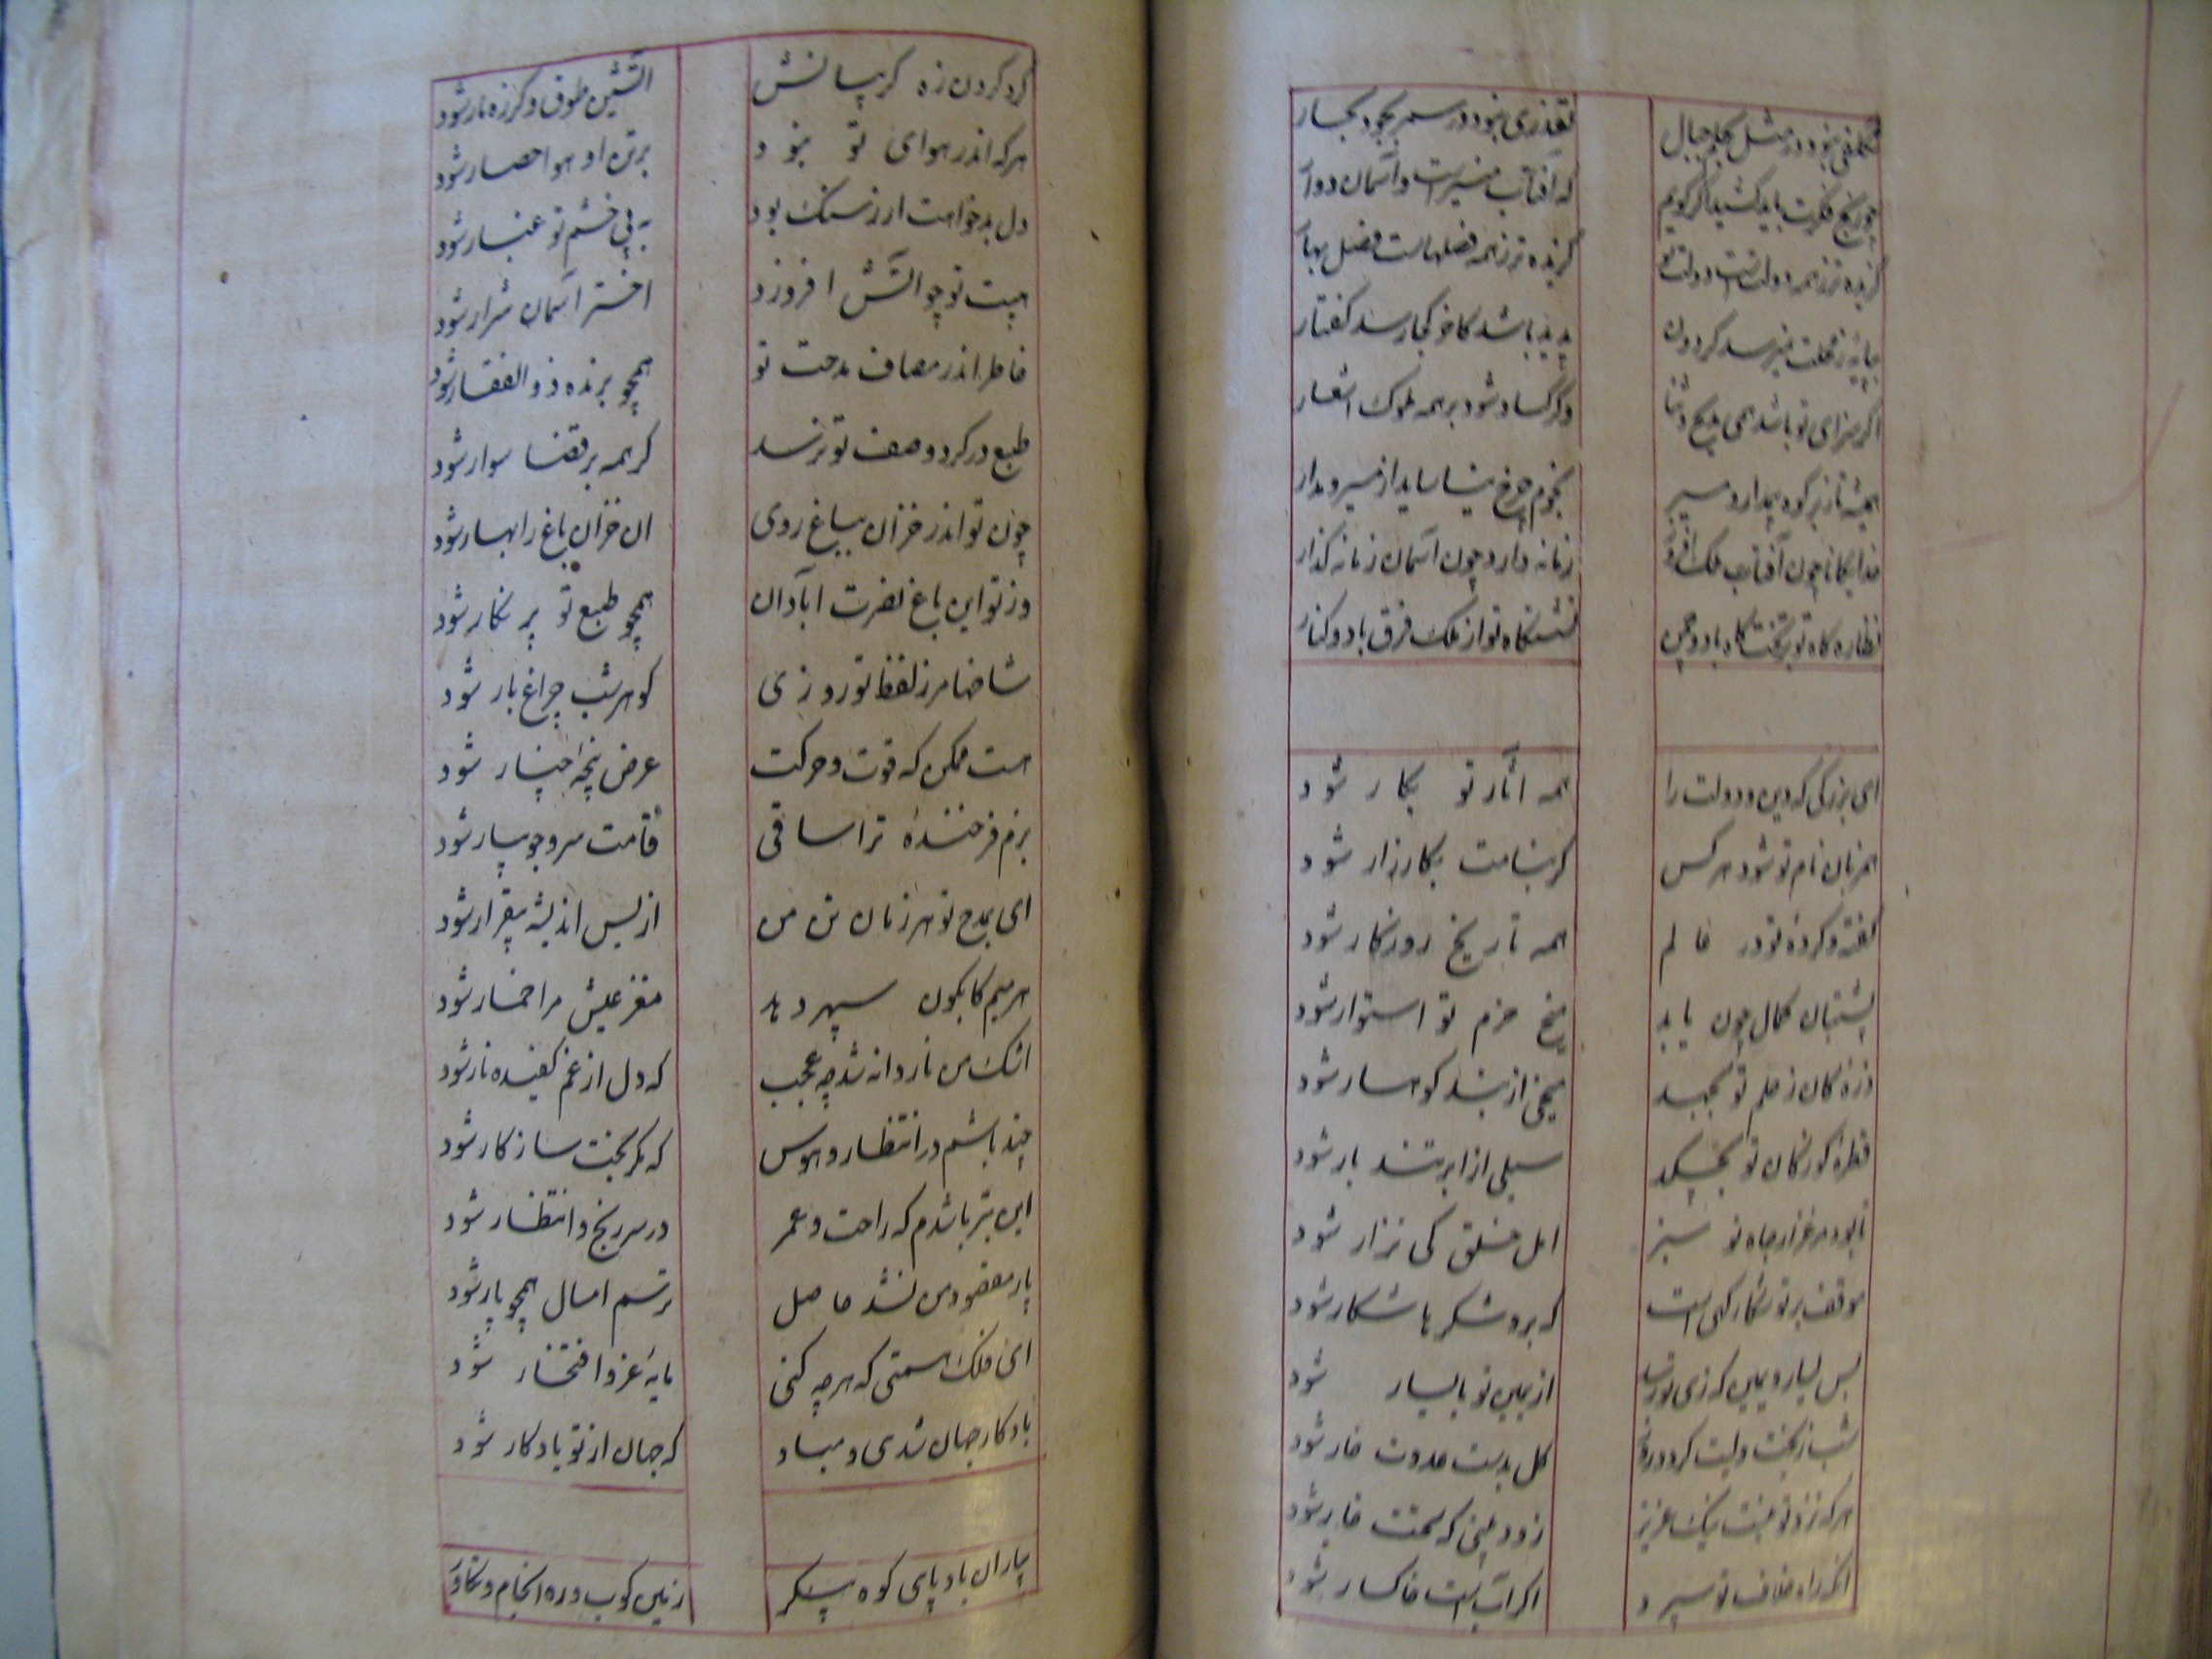 تکلفی نبود در مثل بجاه جبال تعذری نبود در سمر بجود بحار
چو رنج فکرت باید کشید اگر گویم که آفتاب منیرست و آسمان دوار
گزیده تر ز همه دولتست دولت تو گزیده تر ز همه فصلهاست فصل بهار
بپایه ز محلت نمیرسد گردون پدید باشد کاخر کجا رسد گفتار
اگر سزای تو باشد همی مدیح و ثنا دگر کساد شود بر همه ملوک اشعار
همیشه تا زبر کوه بیدار و مسیر نجوم چرخ نیاساید از مسیر و مدار
خدایگانا چون آفتاب ملک افروز زمانه دار و چون آسمان زمانه گذار
نظاره گاه تو بر تختگاه باد و چمن نشستگاه تو از ملک فرق باد و کنار
ای بزرگی که دین و دولت را همه آثار تو بکار شود
همزبان نام تو شود هر کس که بنامت بکارزار شود
گفته و کرده تو در عالم همه تاریخ روزگار شود
پشتبان کمال چون یابد میخ حزم تو استوار شود
ذره کان ز حلم تو بجهد بیخی از بند کوهسار شود
قطره کز بنان تو بچکید سیلی از ابر تند بار شود
تا بود مرغزار جاه تو سبز امل خلق کی نزار شود
موقف بر تو شکار گهی است که برو شکر با شکار شود
بس یسار و یمین که زی تو رسد از یمین تو با یسار شود
شب ز بخت ولیت گردد روز گل بدست عدوت خار شود
هر که نزد تو نیست نیک عزیز زود بینی که سخت خوار شود
آنکه راه خلاف تو سپرد اگر آب است خاکسار شود
گرد گردن زه گریبانش آتشین طوق و گرزه مار شود
هر که اندر هوای تو نبود بر تن او هوا حصار شود
دل بدخواهت ار ز سنگ بود به پی خشم تو غبار شود
هیبت تو چو آتش افروزد اختر آسمان شرار شود
خاطر اندر مصاف مدحت تو همچو برنده ذوالفقار شود
طبع در گرد وصف تو نرسد گر همه بر قضا سوار شود
چون تو اندر خزان بباغ روی آن خزان باغ را بهار شود
وز تو این باغ نصرت آبادان همچو طبع تو پر نگار شود
شاخها مر ز لفظ تو روزی گوهر شب چراغ بار شود
هست ممکن که قوت و حرکت عرض پنجه چنار شود
بزم فرخنده ترا ساقی قامت سرو جویبار شود
ای بمدح تو هر زمان تن من از بس اندیشه بیقرار شود
هر میم کابگون سپهر دهد مغز عیش مرا خمار شود
اشک من ناردانه شد چه عجب که دل از غم کفیده نار شود
چند باشم در انتظار و هوس که مگر بخت سازگار شود
این بتر باشدم که راحت و عمر در سر رنج و انتظار شود
پار مقصود من نشد حاصل ترسم امسال همچو پار شود
ای فلک همتی که هر چه کنی مایه عز و افتخار شود
یادگار جهان شدی و مباد که جهان از تو یادگار شود
بیار آن باد پای کوه پیکر زمین کوب و ره انجام و تکاور